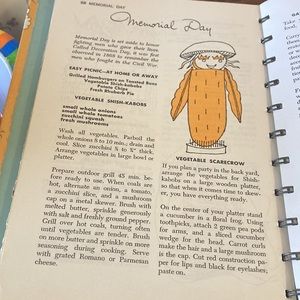 88 MEMORIAL DAY
Memorial Day
Memorial Day is set aside to honor
fighting men who gave their lives.
Called Decoration Day, it was first
observed in 1868 to remember the
men who fought in the Civil War.
EASY PICNIC—AT HOME OR AWAY
Grilled Hamburgers on Toasted Buns
Vegetable Shish-kabobs
Potato Chips
Fresh Rhubarb Pie
VEGETABLE SHISH-KABOBS
small whole onions
small whole tomatoes
zucchini squash
fresh mushrooms
Wash all vegetables. Parboil the
whole onions 8 to 10 min.; drain and
cool. Slice zucchini ½" thick.
Arrange vegetables in large bowl or
platter.
Prepare outdoor grill 45 min. be-
fore ready to use. When coals are
hot, alternate an onion, a tomato,
a zucchini slice, and a mushroom
cap on a metal skewer. Brush with
melted butter, sprinkle generously
with salt and freshly ground pepper.
Grill over hot coals, turning often
until vegetables are tender. Brush
on more butter and sprinkle on more
seasoning during cooking. Serve
with grated Romano or Parmesan
cheese.
VEGETABLE SCARECROW
If you plan a party in the back yard,
arrange the vegetables for Shish-
kabobs on a large wooden platter,
so that when it comes time to skew-
er, you have everything ready.
On the center of your platter stand
a cucumber in a floral frog. Using
toothpicks, attach 2 green pea pods
for arms, and a sliced cucumber
wedge for the head. Carrot curls
make the hair and a large mushroom
is the cap. Cut red construction pa-
per for lips and black for eyelashes;
paste on.